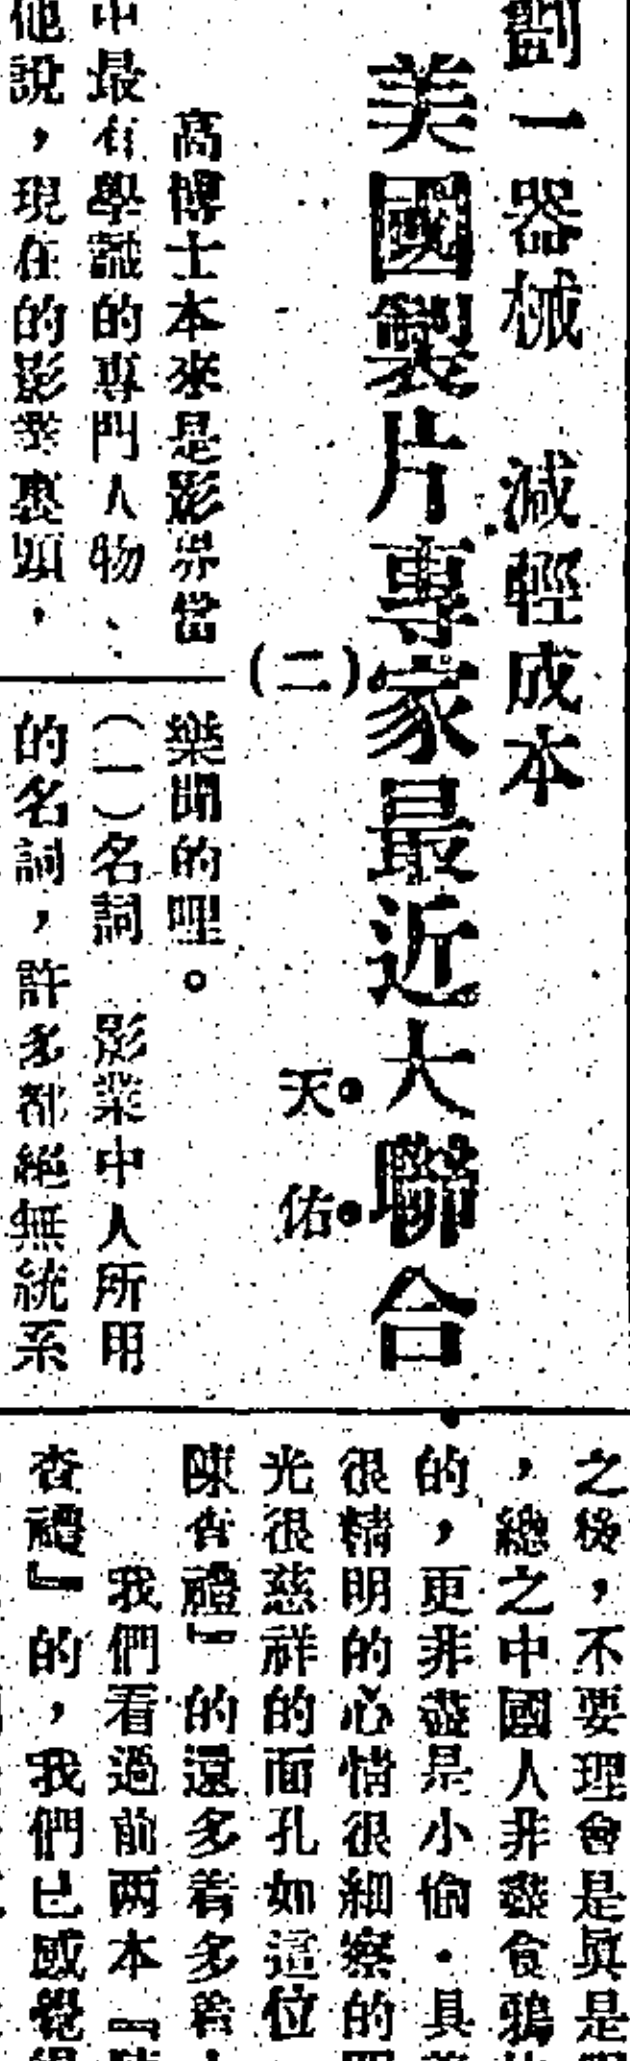 劃一器械　減輕成本
美國製片專家最近大聯合
（二）
天佑
高博士本來是影界當
中最有學識的專門人物、
他說，現在的影業裏頭，
樂聞的哩。
（一）名詞　影業中人所用
的名詞，許多都絕無統系
之後，不要理會是真是
，總之中國人非盡食鴉
的，更非盡是小偷．具
很精明的心情很細察的
光很慈祥的面孔如這位
陳查禮』的還多着多着
我們看過前两本『陳
查禮』的，我們已感覺